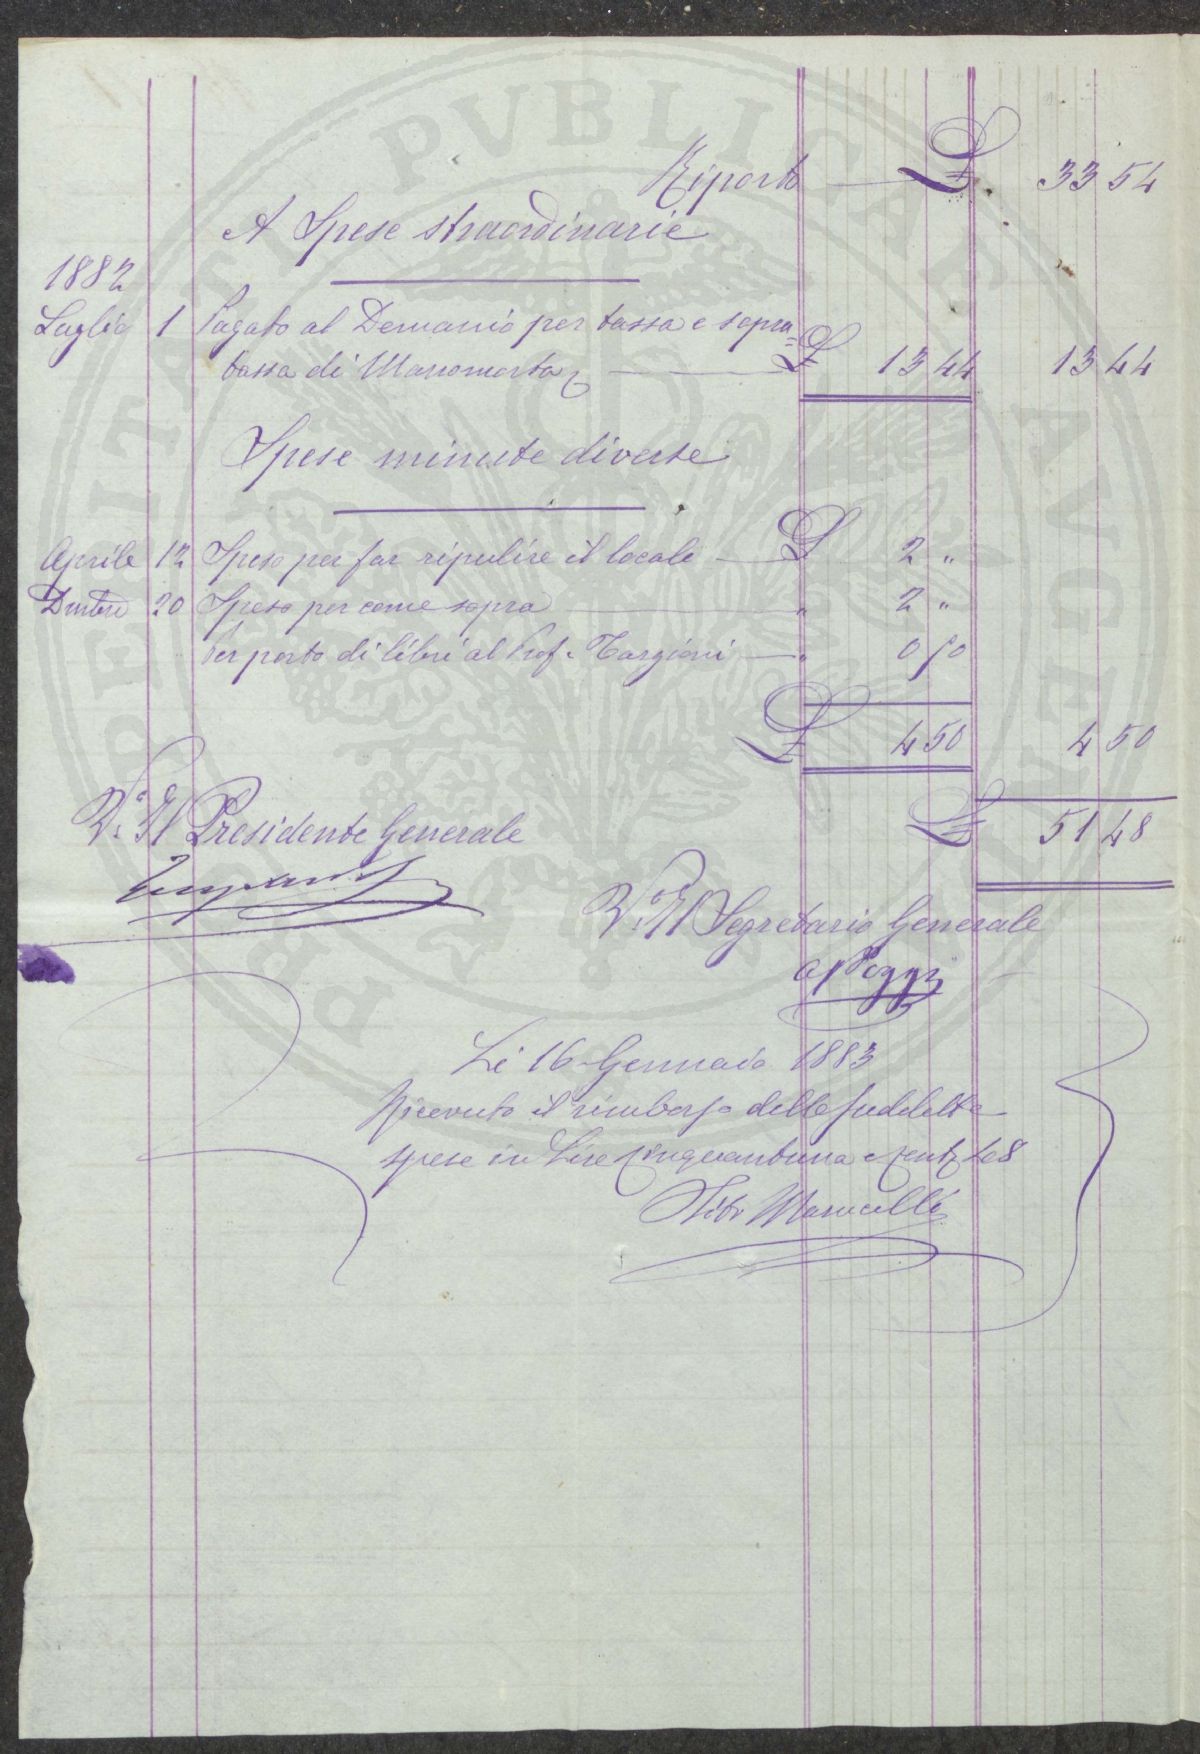 PVBLICAE
PROSPERITATI
AVGENDAE
Riporto £ 33 54
A Spese straordinarie
1882
Luglio 1 Pagato al Demanio per tassa e sopra=
tassa di Manomorta £ 13 44 13 44
Spese minute diverse
Aprile 12 Speso per far ripulire il locale £ 2 "
Dmbre 20 Speso per come sopra " 2 "
Per porto di libri al Prof. Targioni " 0 50
£ 4 50 4 50
V.° Il Presidente Generale
£ 51 48
V.° Il Segretario Generale
Poggi
Li 16 Gennaio 1883
Ricevuto il rimborso delle suddette
spese in Lire cinquantuna e cent 48
Tito Marucelli